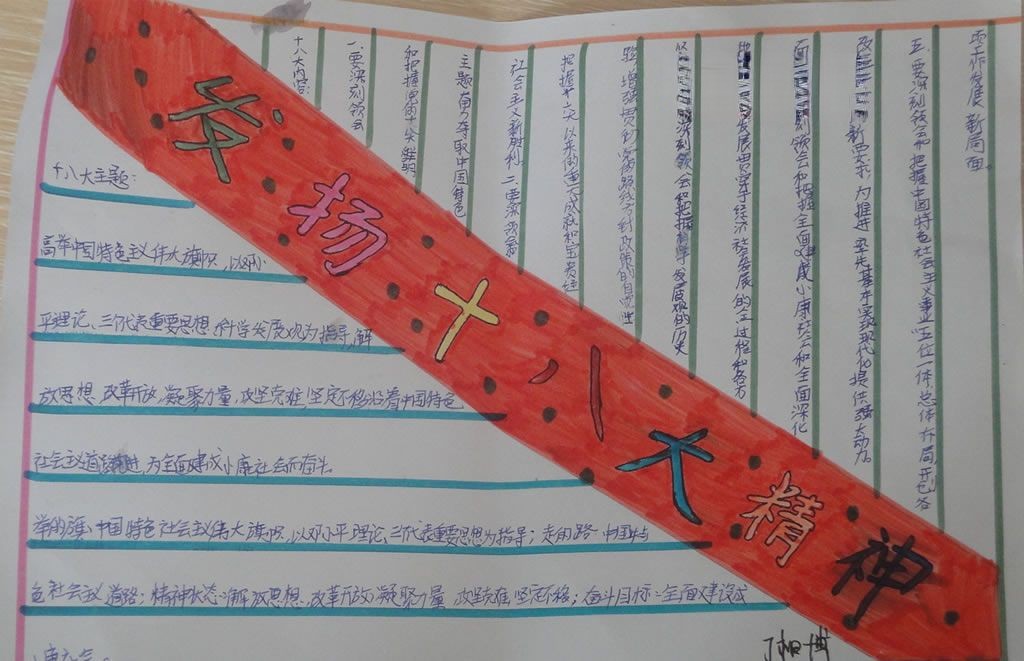 发扬十八大精神
十八大内容:
一.要深刻领会
和把握十八大鲜明
主题奋力夺取中国特色
社会主义新胜利. 二.要深刻领会
把握十六大以来的重大成就和宝贵经
验,增强贯彻的自觉性
深刻领会和把握科学发展观的历史
发展贯穿经济社会发展的全过程和各方
面刻领会和把握全面建成小康经济和全面深化
改新要求,为推进率先基本实现现代化提供强大动力。
五.要深刻领会和把握中国特色社会主义事业五位一体总体布局,开创各
项工作发展新局面。
十八大主题:
高举中国特色主义伟大旗帜,以邓小
平理论、三个代表重要思想,科学发展观为指导,解
放思想,改革开放,凝聚力量,攻坚克难,坚定不移沿着中国特色
社会主义道路前进,为全面建成小康社会而奋斗。
举的旗:中国特色社会主义伟大旗帜,以邓小平理论、三个代表重要思想为指导;走的路:中国特
色社会主义道路;精神状态:解放思想,改革开放,凝聚力量,攻坚克难,坚定不移;奋斗目标:全面建设成
小康社会。